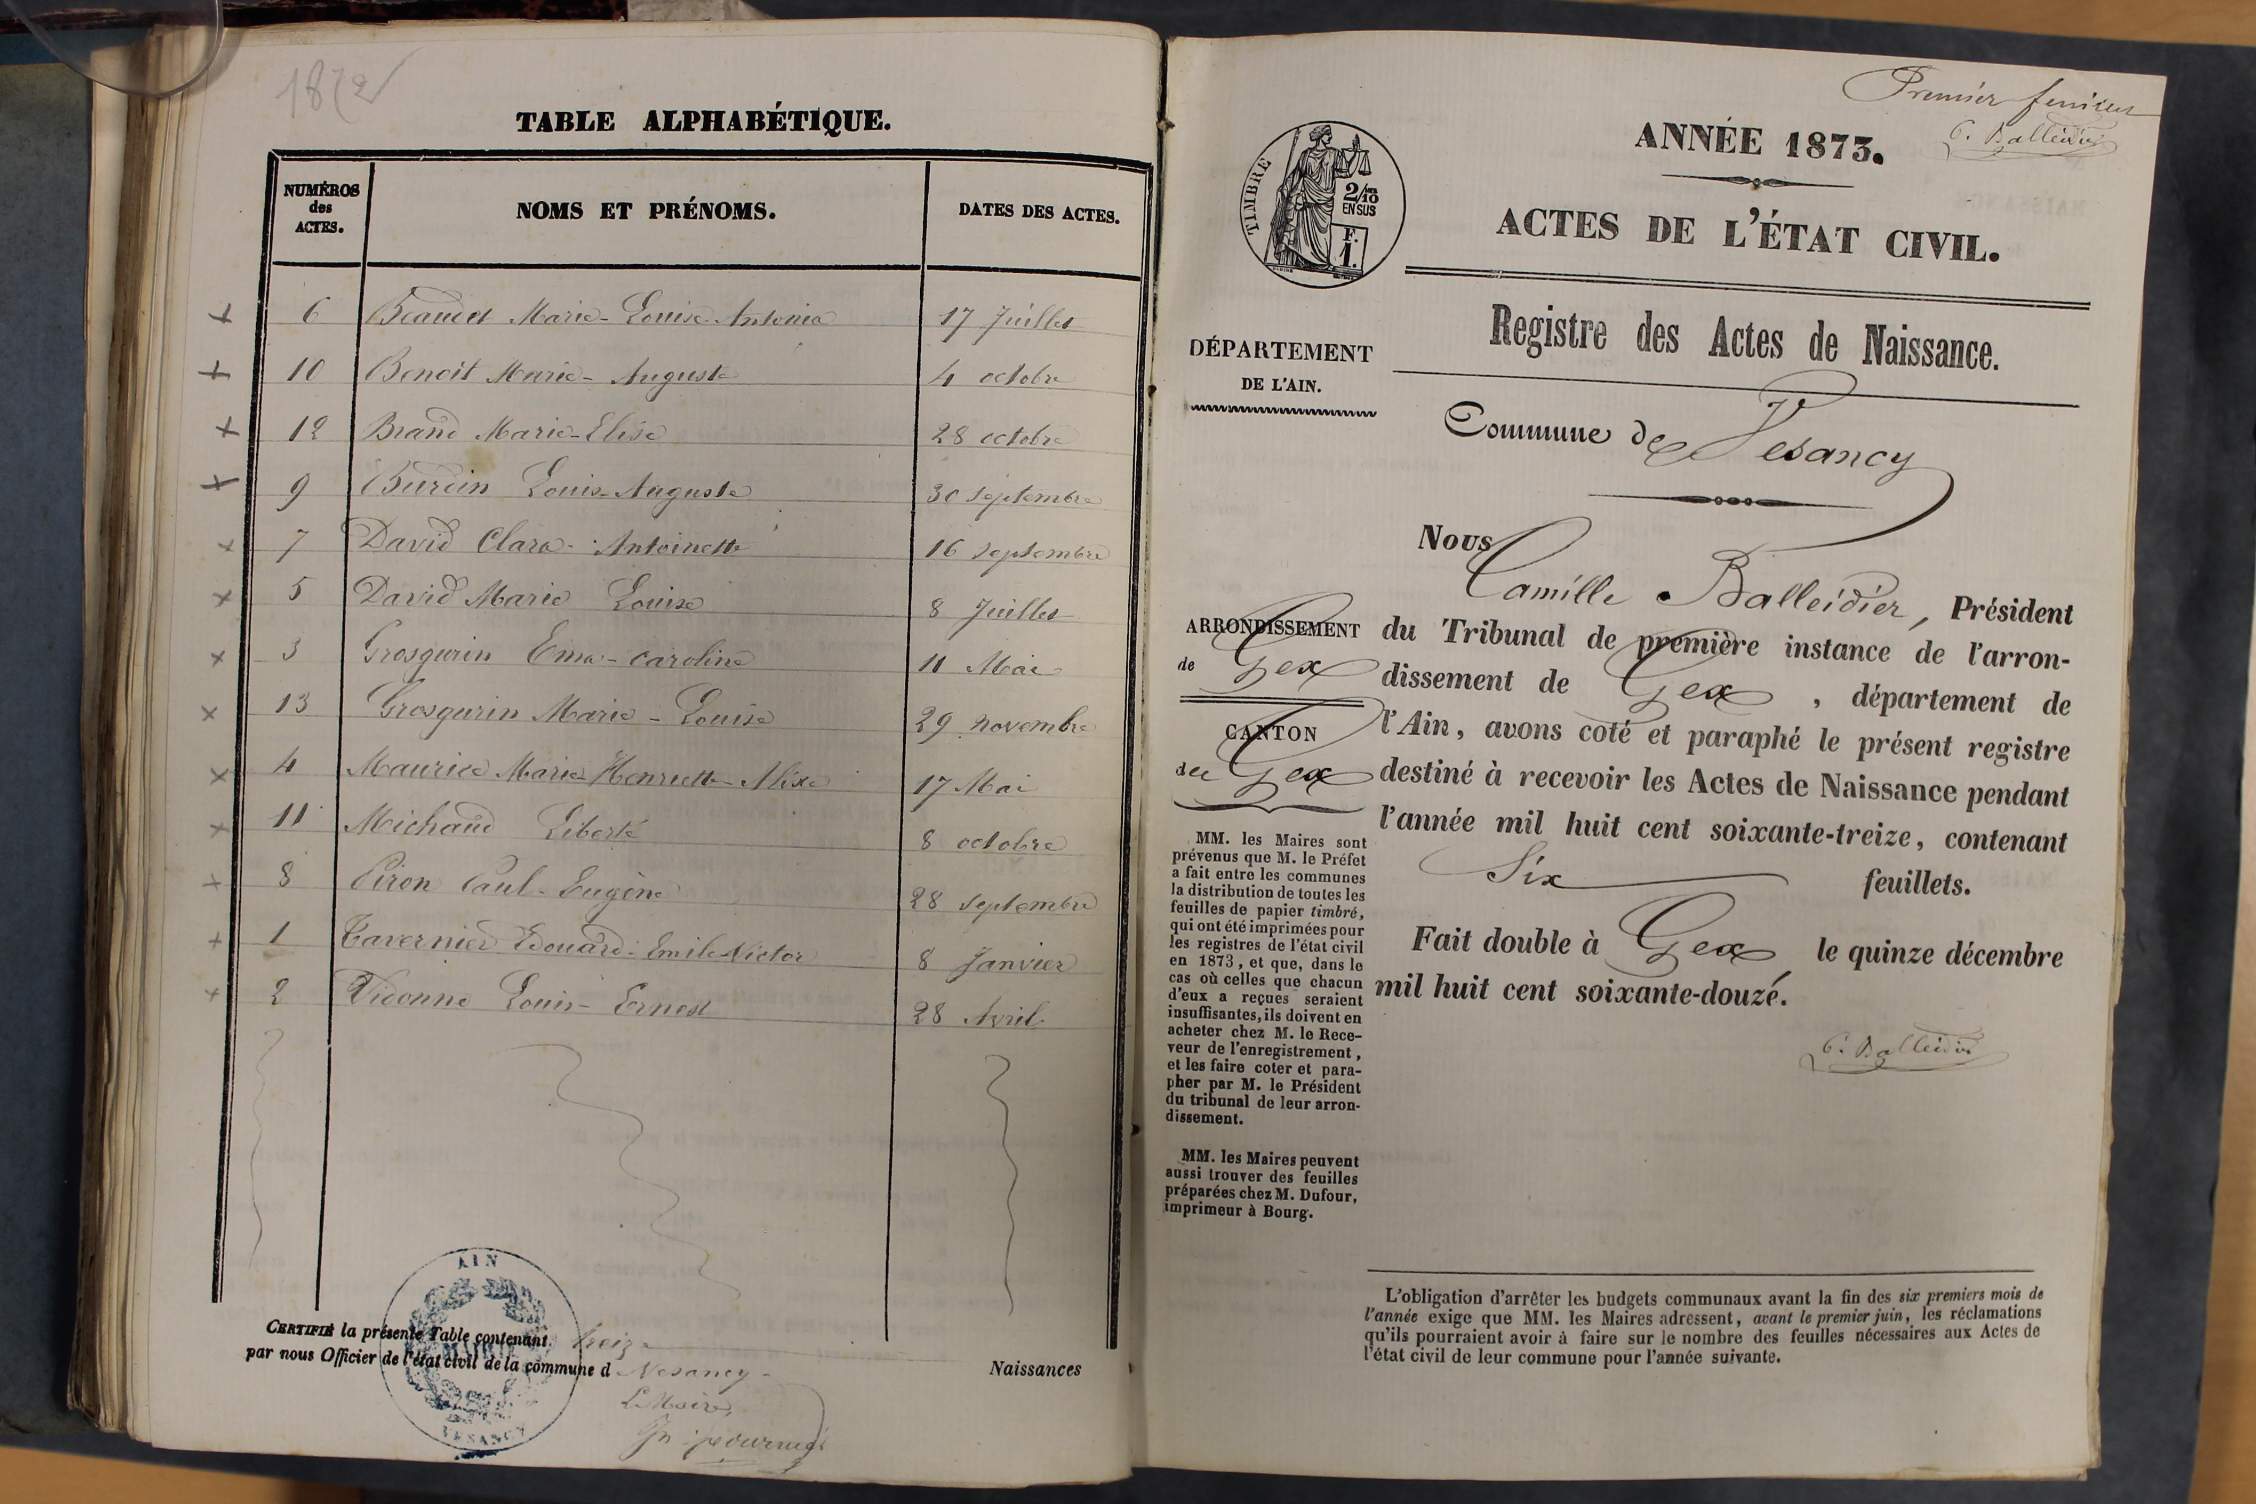 1872
TABLE ALPHABÉTIQUE.
NUMÉROS des ACTES. NOMS ET PRÉNOMS. DATES DES ACTES.
6 Beaudet Marie-Louise-Antonia 17 Juillet
10 Benoit Marie-Auguste 4 octobre
12 Brand Marie-Elise 28 octobre
9 Burdin Louis-Auguste 30 septembre
7 David Clara-Antoinette 16 septembre
5 David Marie Louise 8 Juillet
3 Grosgurin Ema-caroline 11 Mai
13 Grosgurin Marie-Louise 29 novembre
4 Maurice Marie-Henriette-Alixe 17 Mai
11 Michaud Liberté 8 octobre
8 Piron Paul-Eugène 28 septembre
1 Tavernier Edouard-Emile-Victor 8 Janvier
2 Vidonne Louis-Ernest 28 Avril
CERTIFIÉ la présente Table contenant treize Naissances
par nous Officier de l'état civil de la commune d Vesancy
Le Maire,
AIN
MAIRIE
VESANCY
Premier feuillet
C. Balleidier
ANNÉE 1873.
ACTES DE L'ÉTAT CIVIL.
TIMBRE
2/10
EN SUS
F.
1.
Registre des Actes de Naissance.
DÉPARTEMENT
DE L'AIN.
Commune de Vesancy
ARRONDISSEMENT
de Gex
CANTON
de Gex
Nous
Camille Balleidier, Président
du Tribunal de première instance de l'arron-
dissement de Gex, département de
l'Ain, avons coté et paraphé le présent registre
destiné à recevoir les Actes de Naissance pendant
l'année mil huit cent soixante-treize, contenant
Six feuillets.
Fait double à Gex le quinze décembre
mil huit cent soixante-douze.
C. Balleidier
MM. les Maires sont
prévenus que M. le Préfet
a fait entre les communes
la distribution de toutes les
feuilles de papier timbré,
qui ont été imprimées pour
les registres de l'état civil
en 1873, et que, dans le
cas où celles que chacun
d'eux a reçues seraient
insuffisantes, ils doivent en
acheter chez M. le Rece-
veur de l'enregistrement,
et les faire coter et para-
pher par M. le Président
du tribunal de leur arron-
dissement.
MM. les Maires peuvent
aussi trouver des feuilles
préparées chez M. Dufour,
imprimeur à Bourg.
L'obligation d'arrêter les budgets communaux avant la fin des six premiers mois de
l'année exige que MM. les Maires adressent, avant le premier juin, les réclamations
qu'ils pourraient avoir à faire sur le nombre des feuilles nécessaires aux Actes de
l'état civil de leur commune pour l'année suivante.